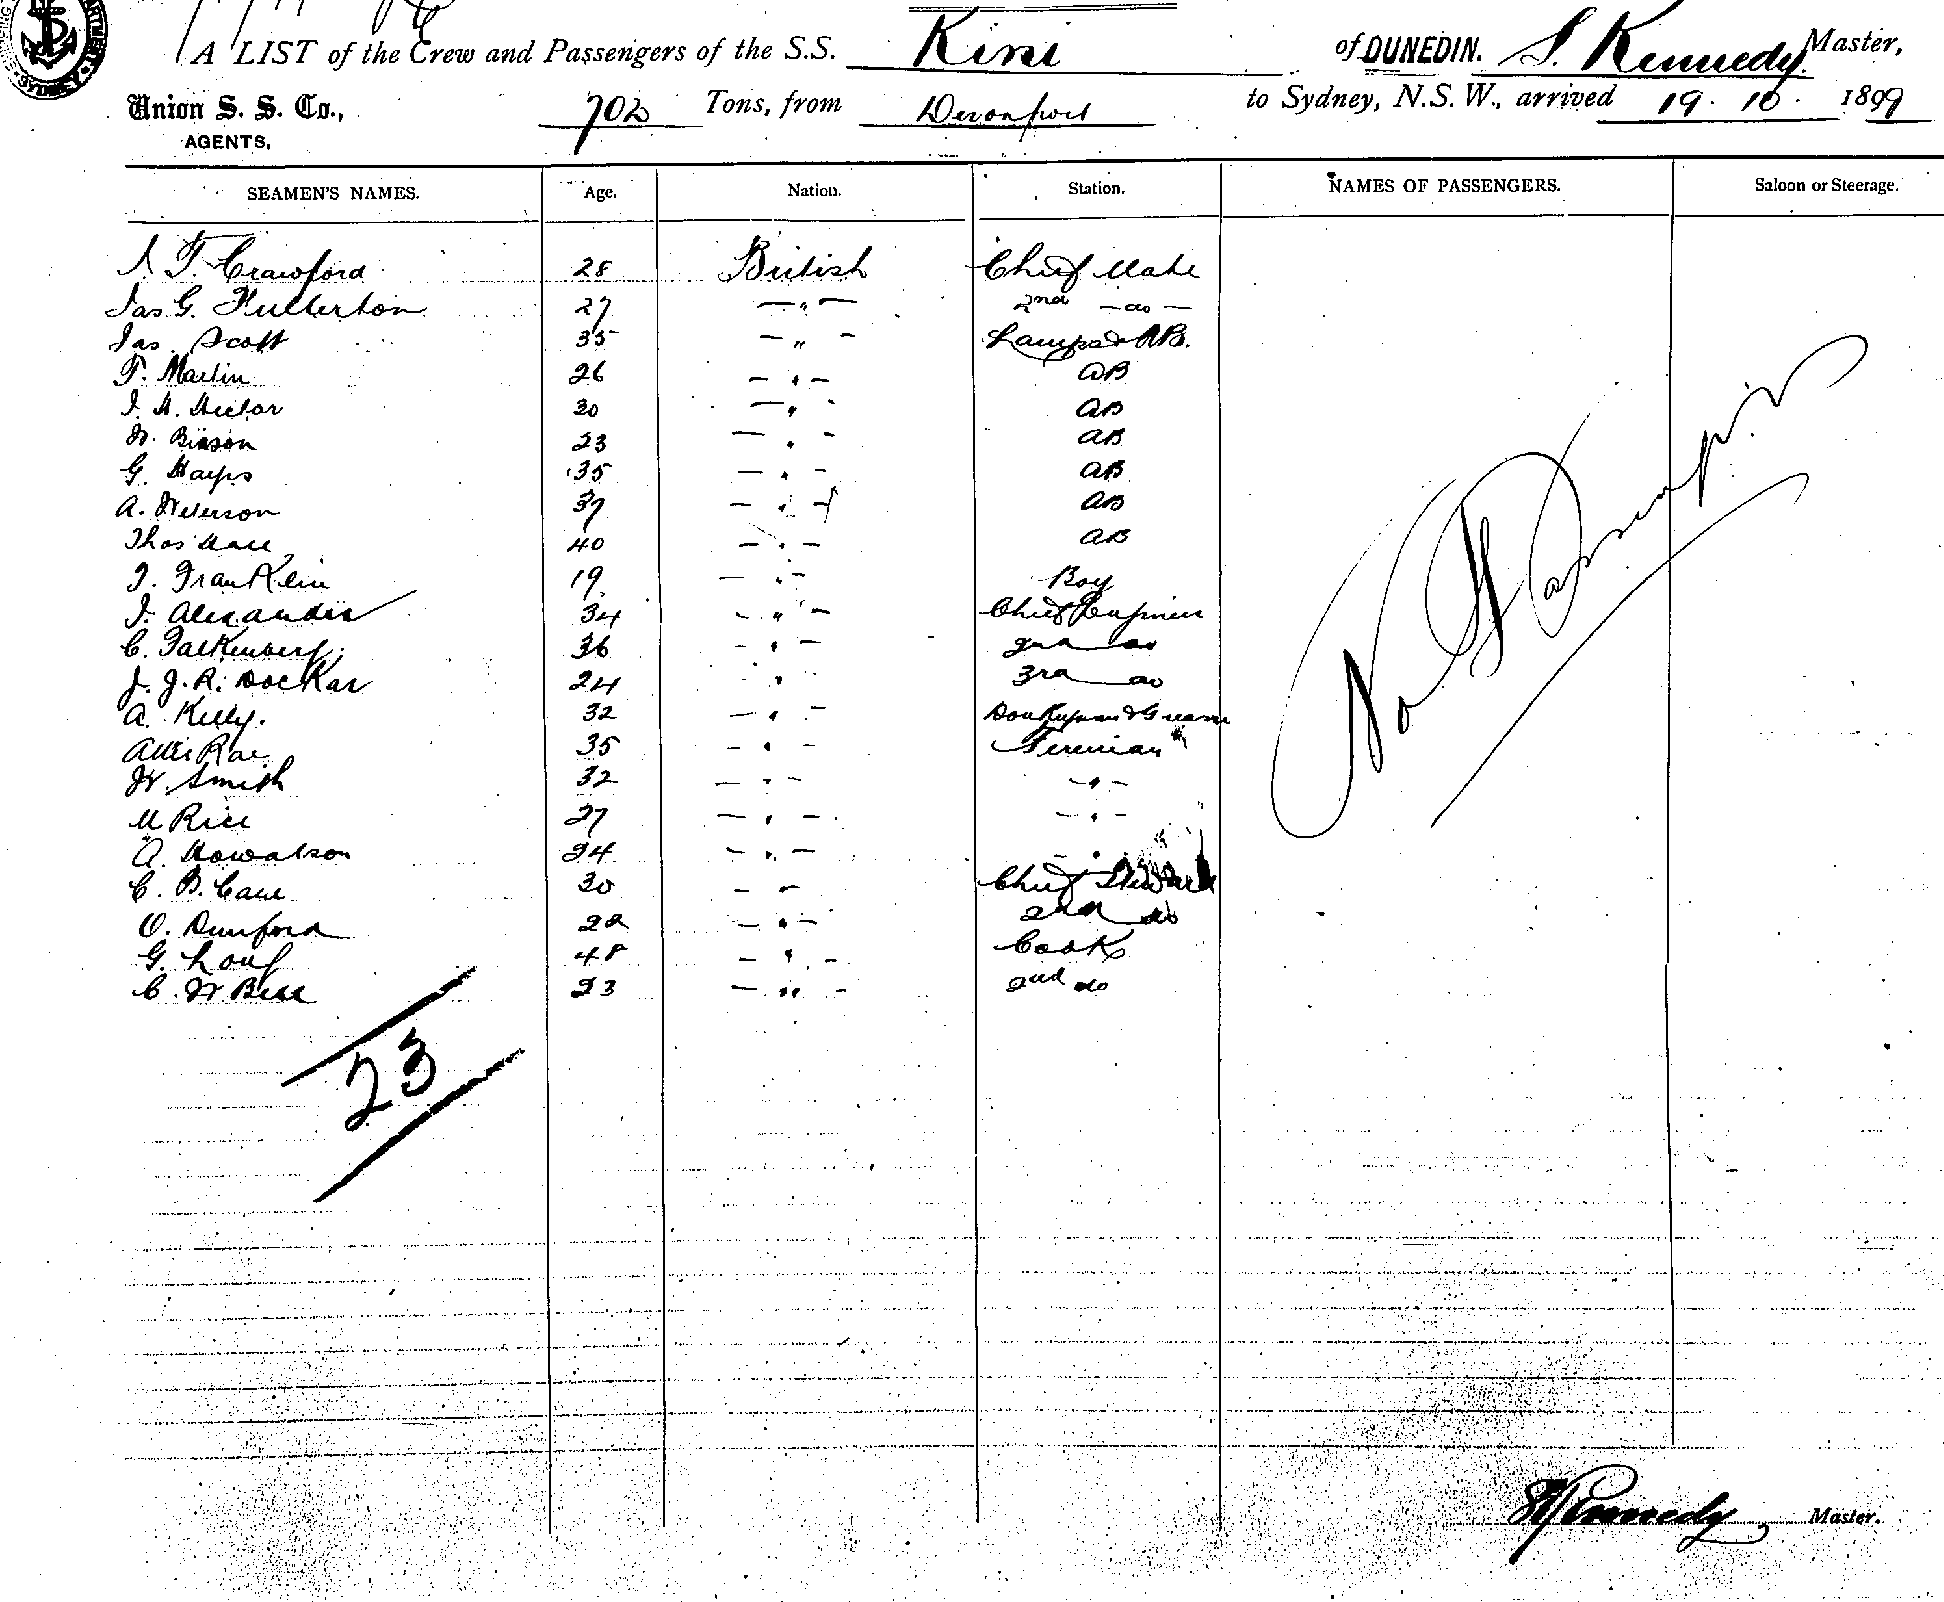 A LIST of the Crew and Passengers of the S.S. Kini of DUNEDIN. S. Kennedy Master,
Union S. S. Co., 702 Tons, from Devonport to Sydney, N.S.W., arrived 19. 10. 1899
AGENTS,
SEAMEN'S NAMES. Age. Nation. Station. NAMES OF PASSENGERS. Saloon or Steerage.
T. Crawford 28 British Chief Mate
Jas G. Fullerton 27 — " — 2nd — do —
Jas. Scott 35 — " — Lamps & AB.
T. Martin 26 — " — AB
J. H. Hector 30 — " AB
W. Bisson 23 — " - AB
G. Harps 35 — " - AB
A. Peterson 37 — " — AB
Thos 40 — " — AB
J. Franklin 19 — " - Boy
J. Alexander 34 - " - Chief Engineer
C. Falkenberg 36 — " — 2nd do
J. J. R. Dockar 24 " 3rd do
A. Kelly. 32 — " - Donkeyman & Greaser
Rae 35 - " - Fireman
W. Smith 32 — " - - " -
M Rice 27 — " - - " -
A. Howatson 24 — " — "
C. B. Cane 30 - - Chief Steward
O. Dunford 22 - " - 2nd do
G. Long 48 - " - Cook
C. W Bell 23 — " - 2nd do
23
No Passengers
S Kennedy Master.